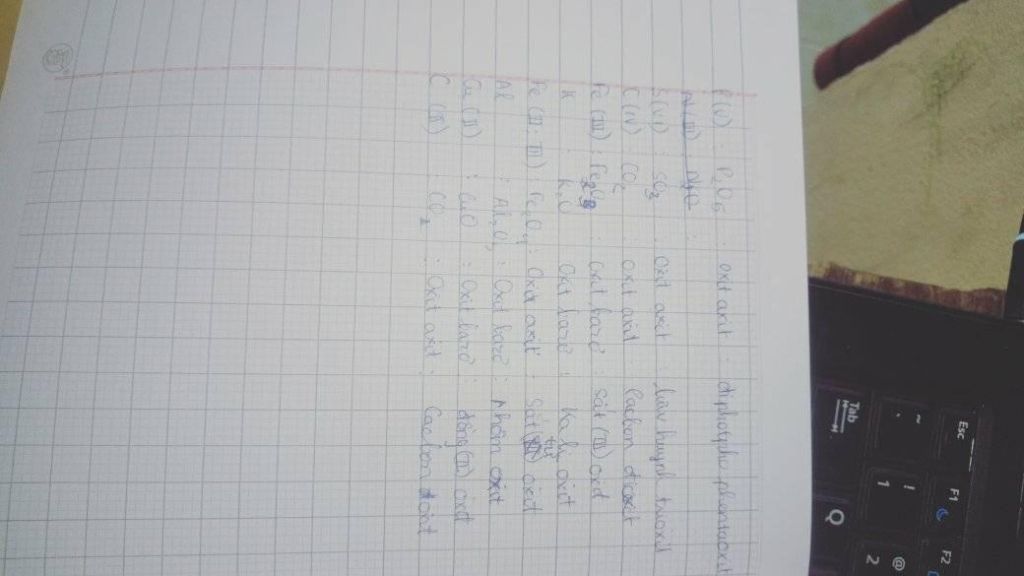 P(V) : P2O5 : oxit axit : điphotpho pentaoxit
S(VI) : SO3 : oxit axit : lưu huỳnh trioxit
C(IV) : CO2 : oxit axit : Cacbon đioxit
Fe(III) : Fe2O3 : oxit bazơ : Sắt (III) oxit
K : K2O : Oxit bazơ : Kali oxit
Fe(II, III) Fe3O4 : Oxit axit : Sắt từ oxit
Al : Al2O3 : Oxit bazơ : Nhôm oxit
Cu(II) : CuO : Oxit bazơ : đồng (II) oxit
C (II) : CO2 : Oxit axit : Cacbon oxit
Esc
F1
F2
~
`
!
1
@
2
Tab
Q